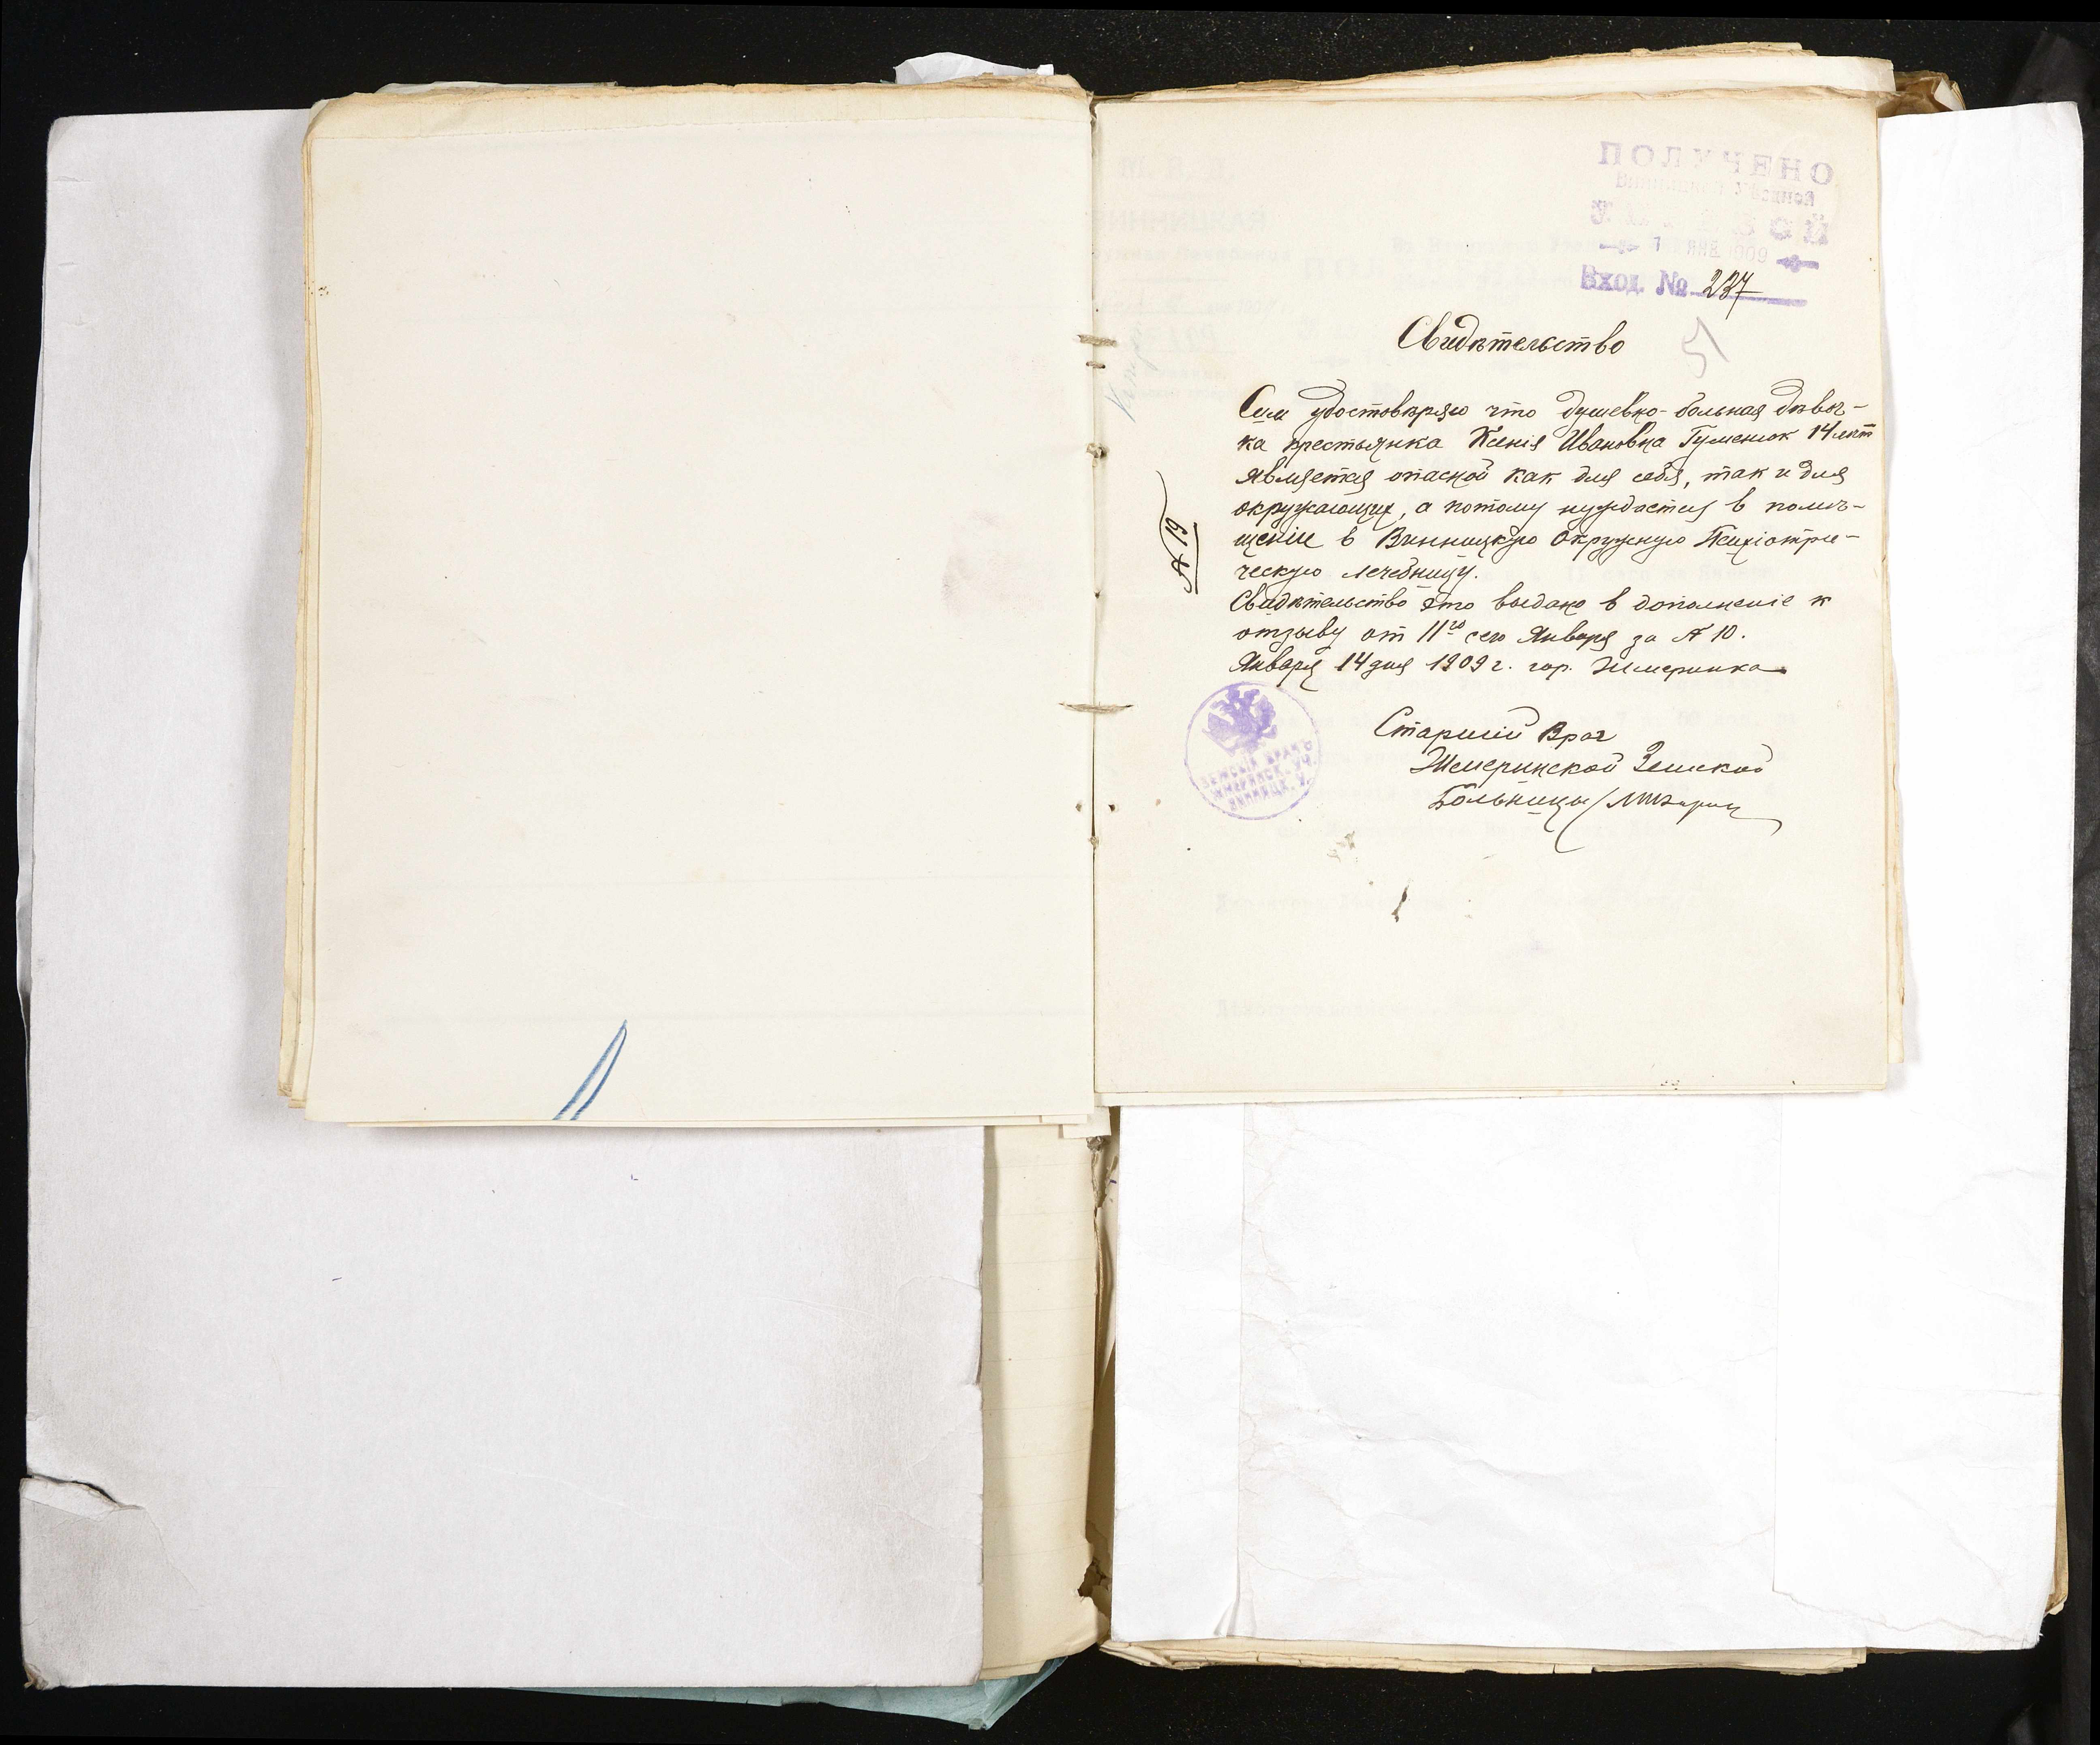 ПОЛУЧЕНО
Винницкой Уездной
Управой
ЯНВ 1909
Вход. № 237
Свидѣтельство
51
Сим удостовѣряю что душевно-больная дѣвоч-
ка крестьянка Ксенія Ивановна Гуменюк 14 лѣт
является опасной как для себя, так и для
окружающих, а потому нуждается в помѣ-
щеніи в Винницкую Окружную Психіатри-
ческую лечебницу.
Свидѣтельство это выдано в дополненіе к
отзыву от 11го сего Января за № 10.
Января 14 дня 1909 г. гор. Жмеринка
№ 19
Старшій Врач
Жмеринской Земской
Больницы
ЗЕМСКІЙ ВРАЧЪ
ЖМЕРИНСК. УЧ.
ВИННИЦК. У.